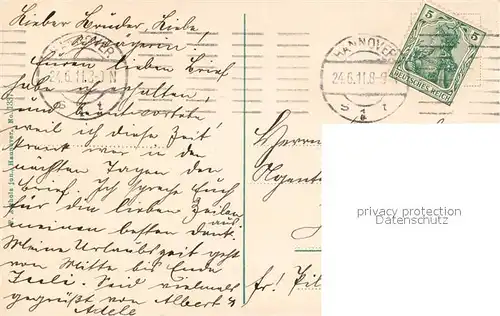 Lieber Bruder, Liebe
Schwägerin!
Euren lieben Brief
habe ich erhalten,
und beantwortete
weil ich diese Zeit
krank war in den
nächsten Tagen den
Brief. Ich spreche Euch
für die lieben Zeilen
meinen besten Dank. aus
Meine Urlaubszeit geht
von Mitte bis Ende
Seid vielmals
gegrüßt von Albert u
Adele
HANNOVER
24.6.11.8-9 N
S 1 t
a
HANNOVER
24.6.11.8-9
S 1 t
a
5 5
DEUTSCHES REICH
Herrn
privacy protection
Datenschutz
jun., Hannover. No.